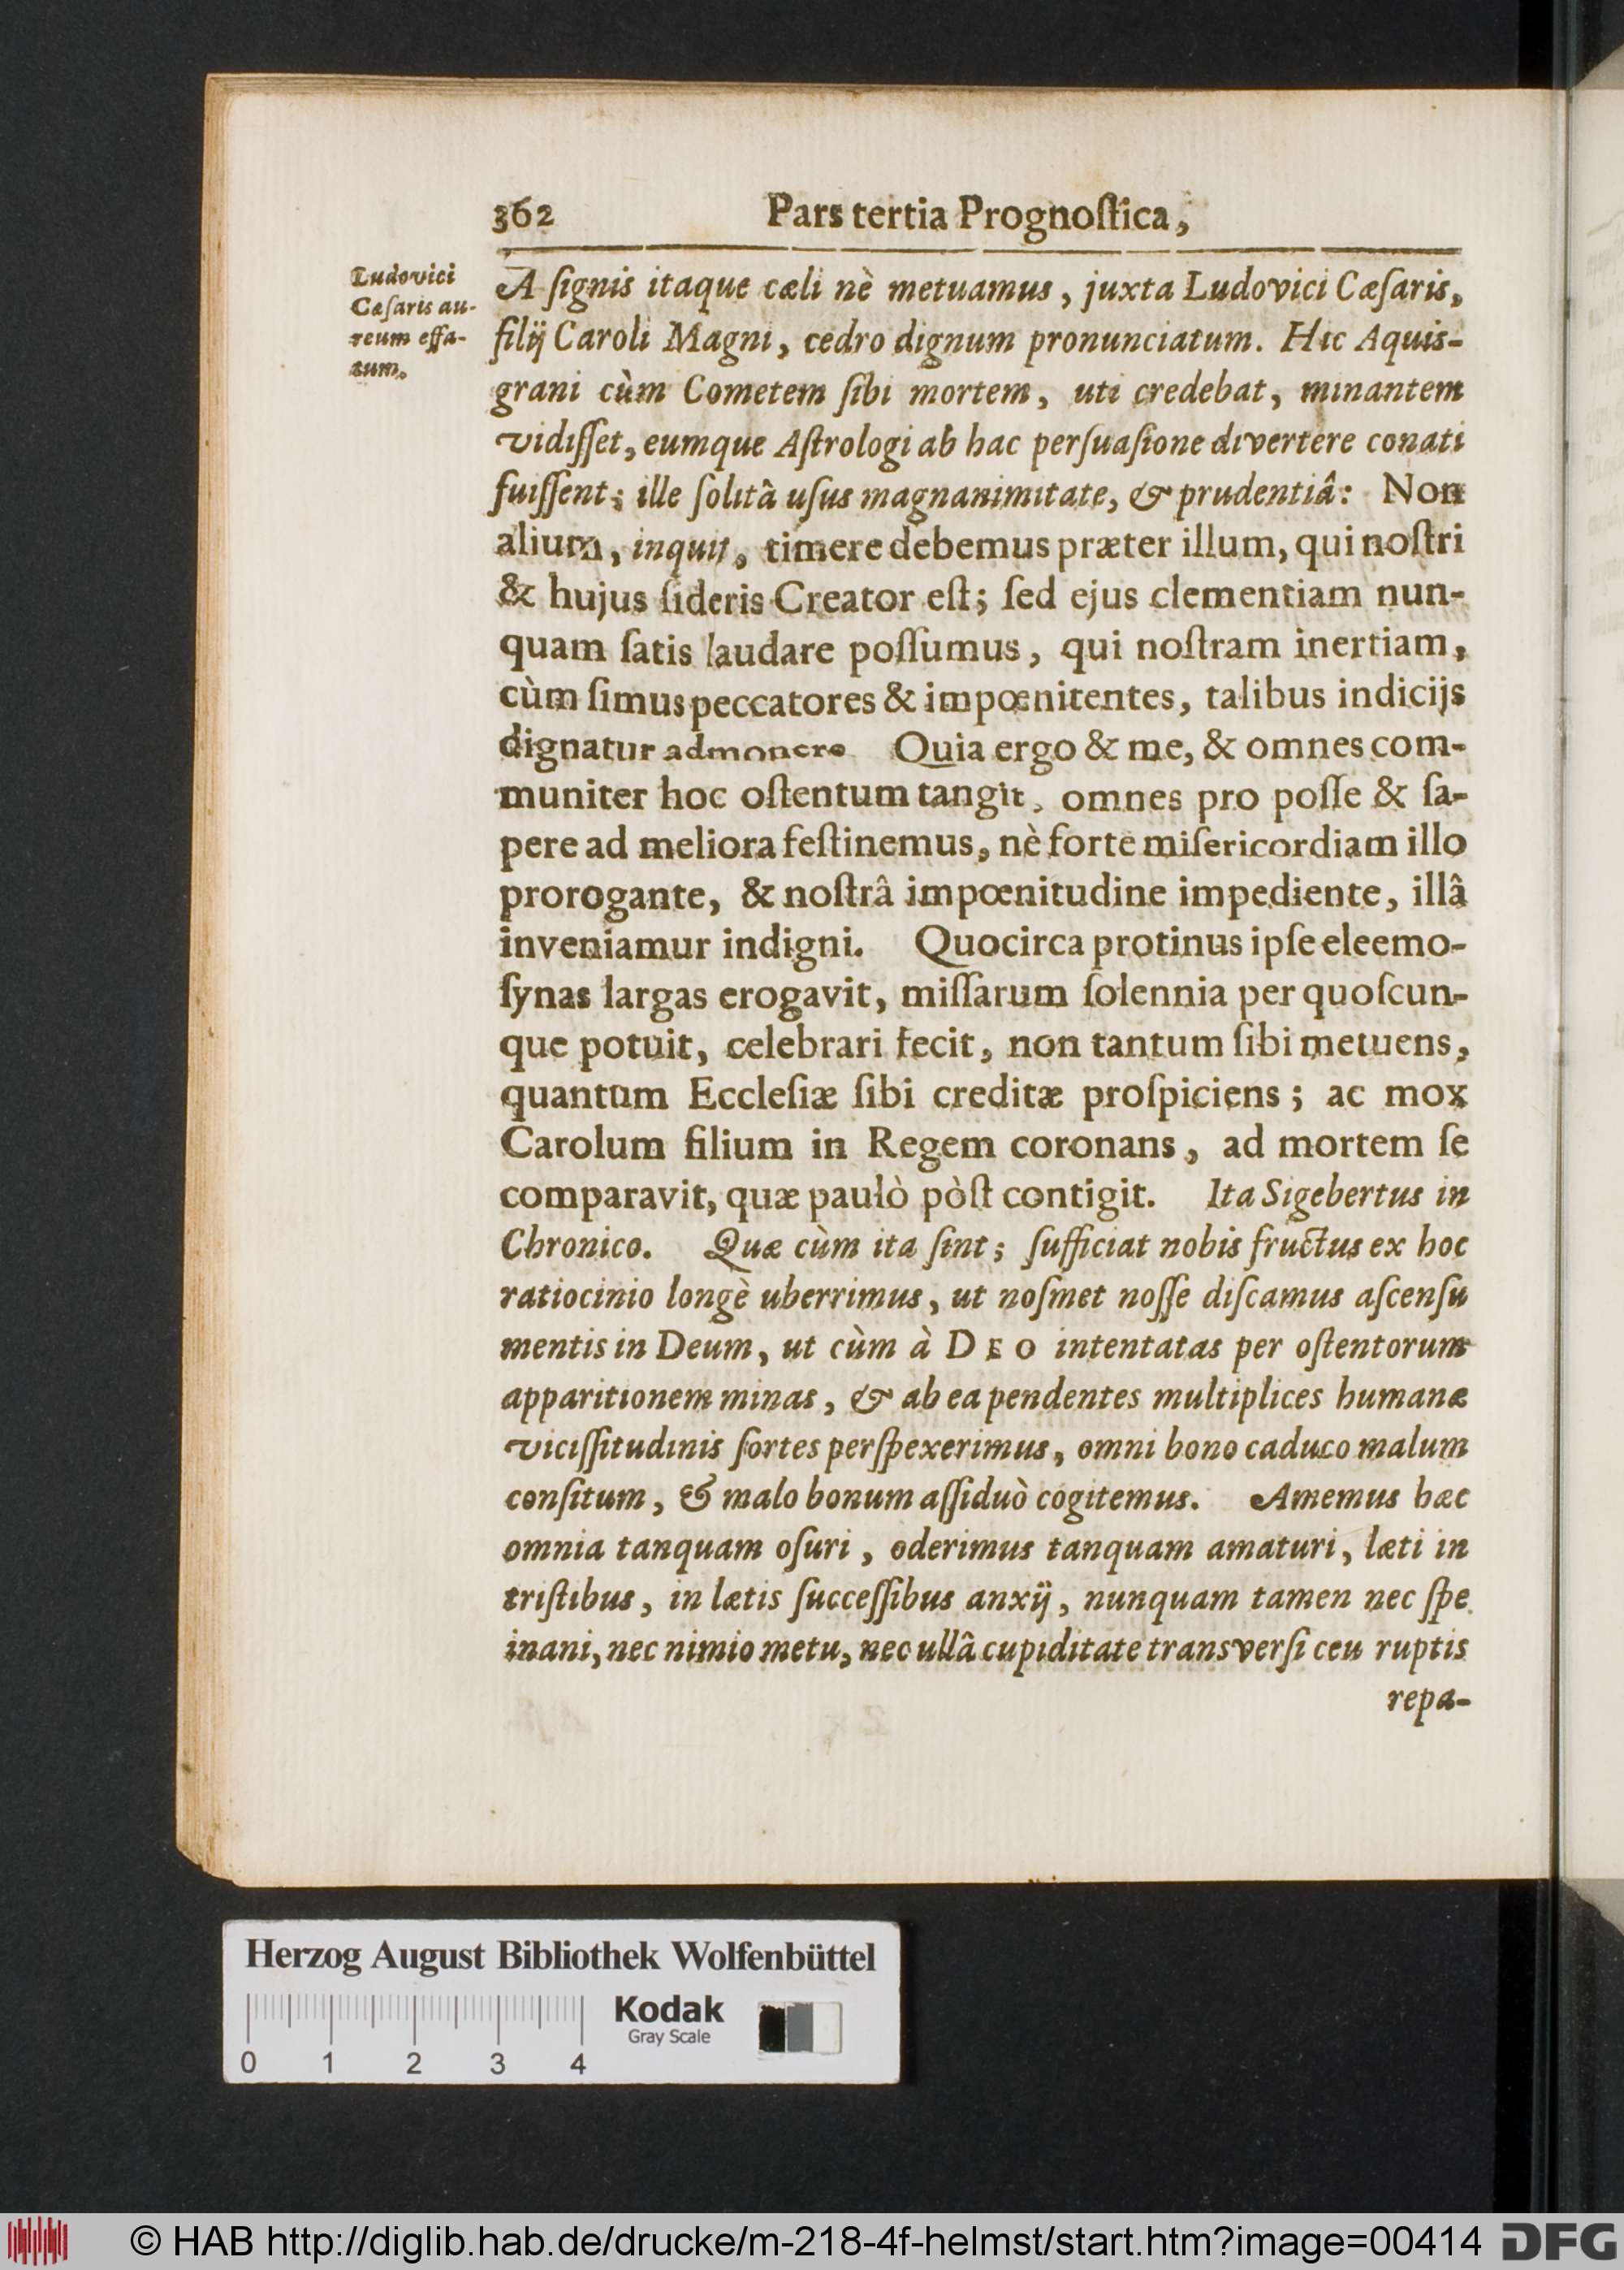 362 Pars tertia Prognoſtica,
Ludovici
Cæſaris au-
reum effa-
tum.
A ſignis itaque cæli nè metuamus, juxta Ludovici Cæſaris,
filij Caroli Magni, cedro dignum pronunciatum. Hic Aquis-
grani cùm Cometem ſibi mortem, uti credebat, minantem
vidiſſet, eumque Aſtrologi ab hac perſuaſione divertere conati
fuiſſent; ille ſolitâ uſus magnanimitate, & prudentiâ: Non
alium, inquit, timere debemus præter illum, qui noſtri
& hujus ſideris Creator eſt; ſed ejus clementiam nun-
quam ſatis laudare poſſumus, qui noſtram inertiam,
cùm ſimus peccatores & impœnitentes, talibus indicijs
dignatur admonere. Quia ergo & me, & omnes com-
muniter hoc oſtentum tangit, omnes pro poſſe & ſa-
pere ad meliora feſtinemus, nè forte miſericordiam illo
prorogante, & noſtrâ impœnitudine impediente, illâ
inveniamur indigni. Quocirca protinus ipſe eleemo-
ſynas largas erogavit, miſſarum ſolennia per quoſcun-
que potuit, celebrari fecit, non tantum ſibi metuens,
quantum Eccleſiæ ſibi creditæ proſpiciens; ac mox
Carolum filium in Regem coronans, ad mortem ſe
comparavit, quæ paulò pòſt contigit. Ita Sigebertus in
Chronico. Quæ cùm ita ſint; ſufficiat nobis fructus ex hoc
ratiocinio longè uberrimus, ut noſmet noſſe diſcamus aſcenſu
mentis in Deum, ut cùm à DEO intentatas per oſtentorum
apparitionem minas, & ab ea pendentes multiplices humanæ
viciſſitudinis ſortes perſpexerimus, omni bono caduco malum
conſitum, & malo bonum aſſiduò cogitemus. Amemus hæc
omnia tanquam oſuri, oderimus tanquam amaturi, læti in
triſtibus, in lætis ſucceſſibus anxij, nunquam tamen nec ſpe
inani, nec nimio metu, nec ullâ cupiditate transverſi ceu ruptis
repa-
Herzog August Bibliothek Wolfenbüttel
Kodak
Gray Scale
0 1 2 3 4
© HAB http://diglib.hab.de/drucke/m-218-4f-helmst/start.htm?image=00414 DFG